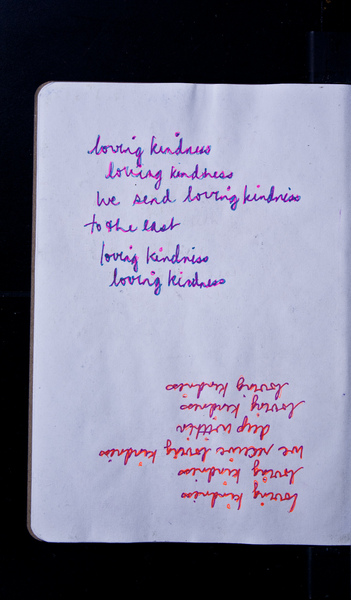 loving kindness
loving kindness
We send loving kindness
to the east
loving kindness
loving kindness
loving kindness
loving kindness
we receive loving kindness
deep within
loving kindness
loving kindness